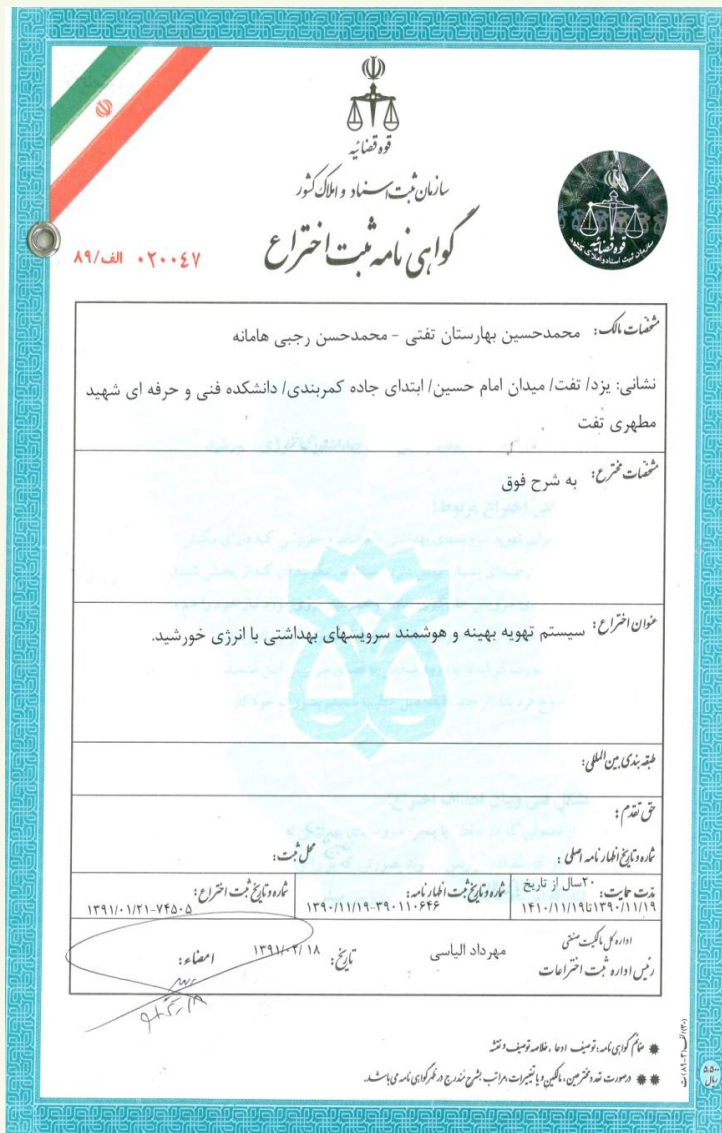 قوه قضائیه
سازمان ثبت اسناد و املاک کشور
گواهی نامه ثبت اختراع
الف/۸۹ ۰۲۰۰۴۷
قوه قضائیه
سازمان ثبت اسناد و املاک کشور
مشخصات مالک: محمدحسین بهارستان تفتی - محمدحسن رجبی هامانه
نشانی: یزد/ تفت/ میدان امام حسین/ ابتدای جاده کمربندی/ دانشکده فنی و حرفه ای شهید
مطهری تفت
مشخصات مخترع: به شرح فوق
عنوان اختراع: سیستم تهویه بهینه و هوشمند سرویسهای بهداشتی با انرژی خورشید.
طبقه بندی بین المللی:
حق تقدم:
شماره و تاریخ اظهارنامه اصلی: محل ثبت:
مدت حمایت: ۲۰سال از تاریخ
۱۳۹۰/۱۱/۱۹تا۱۴۱۰/۱۱/۱۹
شماره و تاریخ ثبت اظهارنامه:
۱۳۹۰/۱۱/۱۹-۳۹۰۱۱۰۶۴۶
شماره و تاریخ ثبت اختراع:
۱۳۹۱/۰۱/۲۱-۷۴۵۰۵
اداره کل مالکیت صنعتی
رئیس اداره ثبت اختراعات
مهرداد الیاسی
تاریخ: ۱۳۹۱/۰۲/۱۸
امضاء:
ضمائم گواهی نامه: توصیف، ادعا، خلاصه توصیف و نقشه
درصورت تعدد مخترعین، مالکین و یا تغییرات، مراتب بشرح مندرج در ظهر گواهی نامه می باشد.
۵۵۰۰
ریال